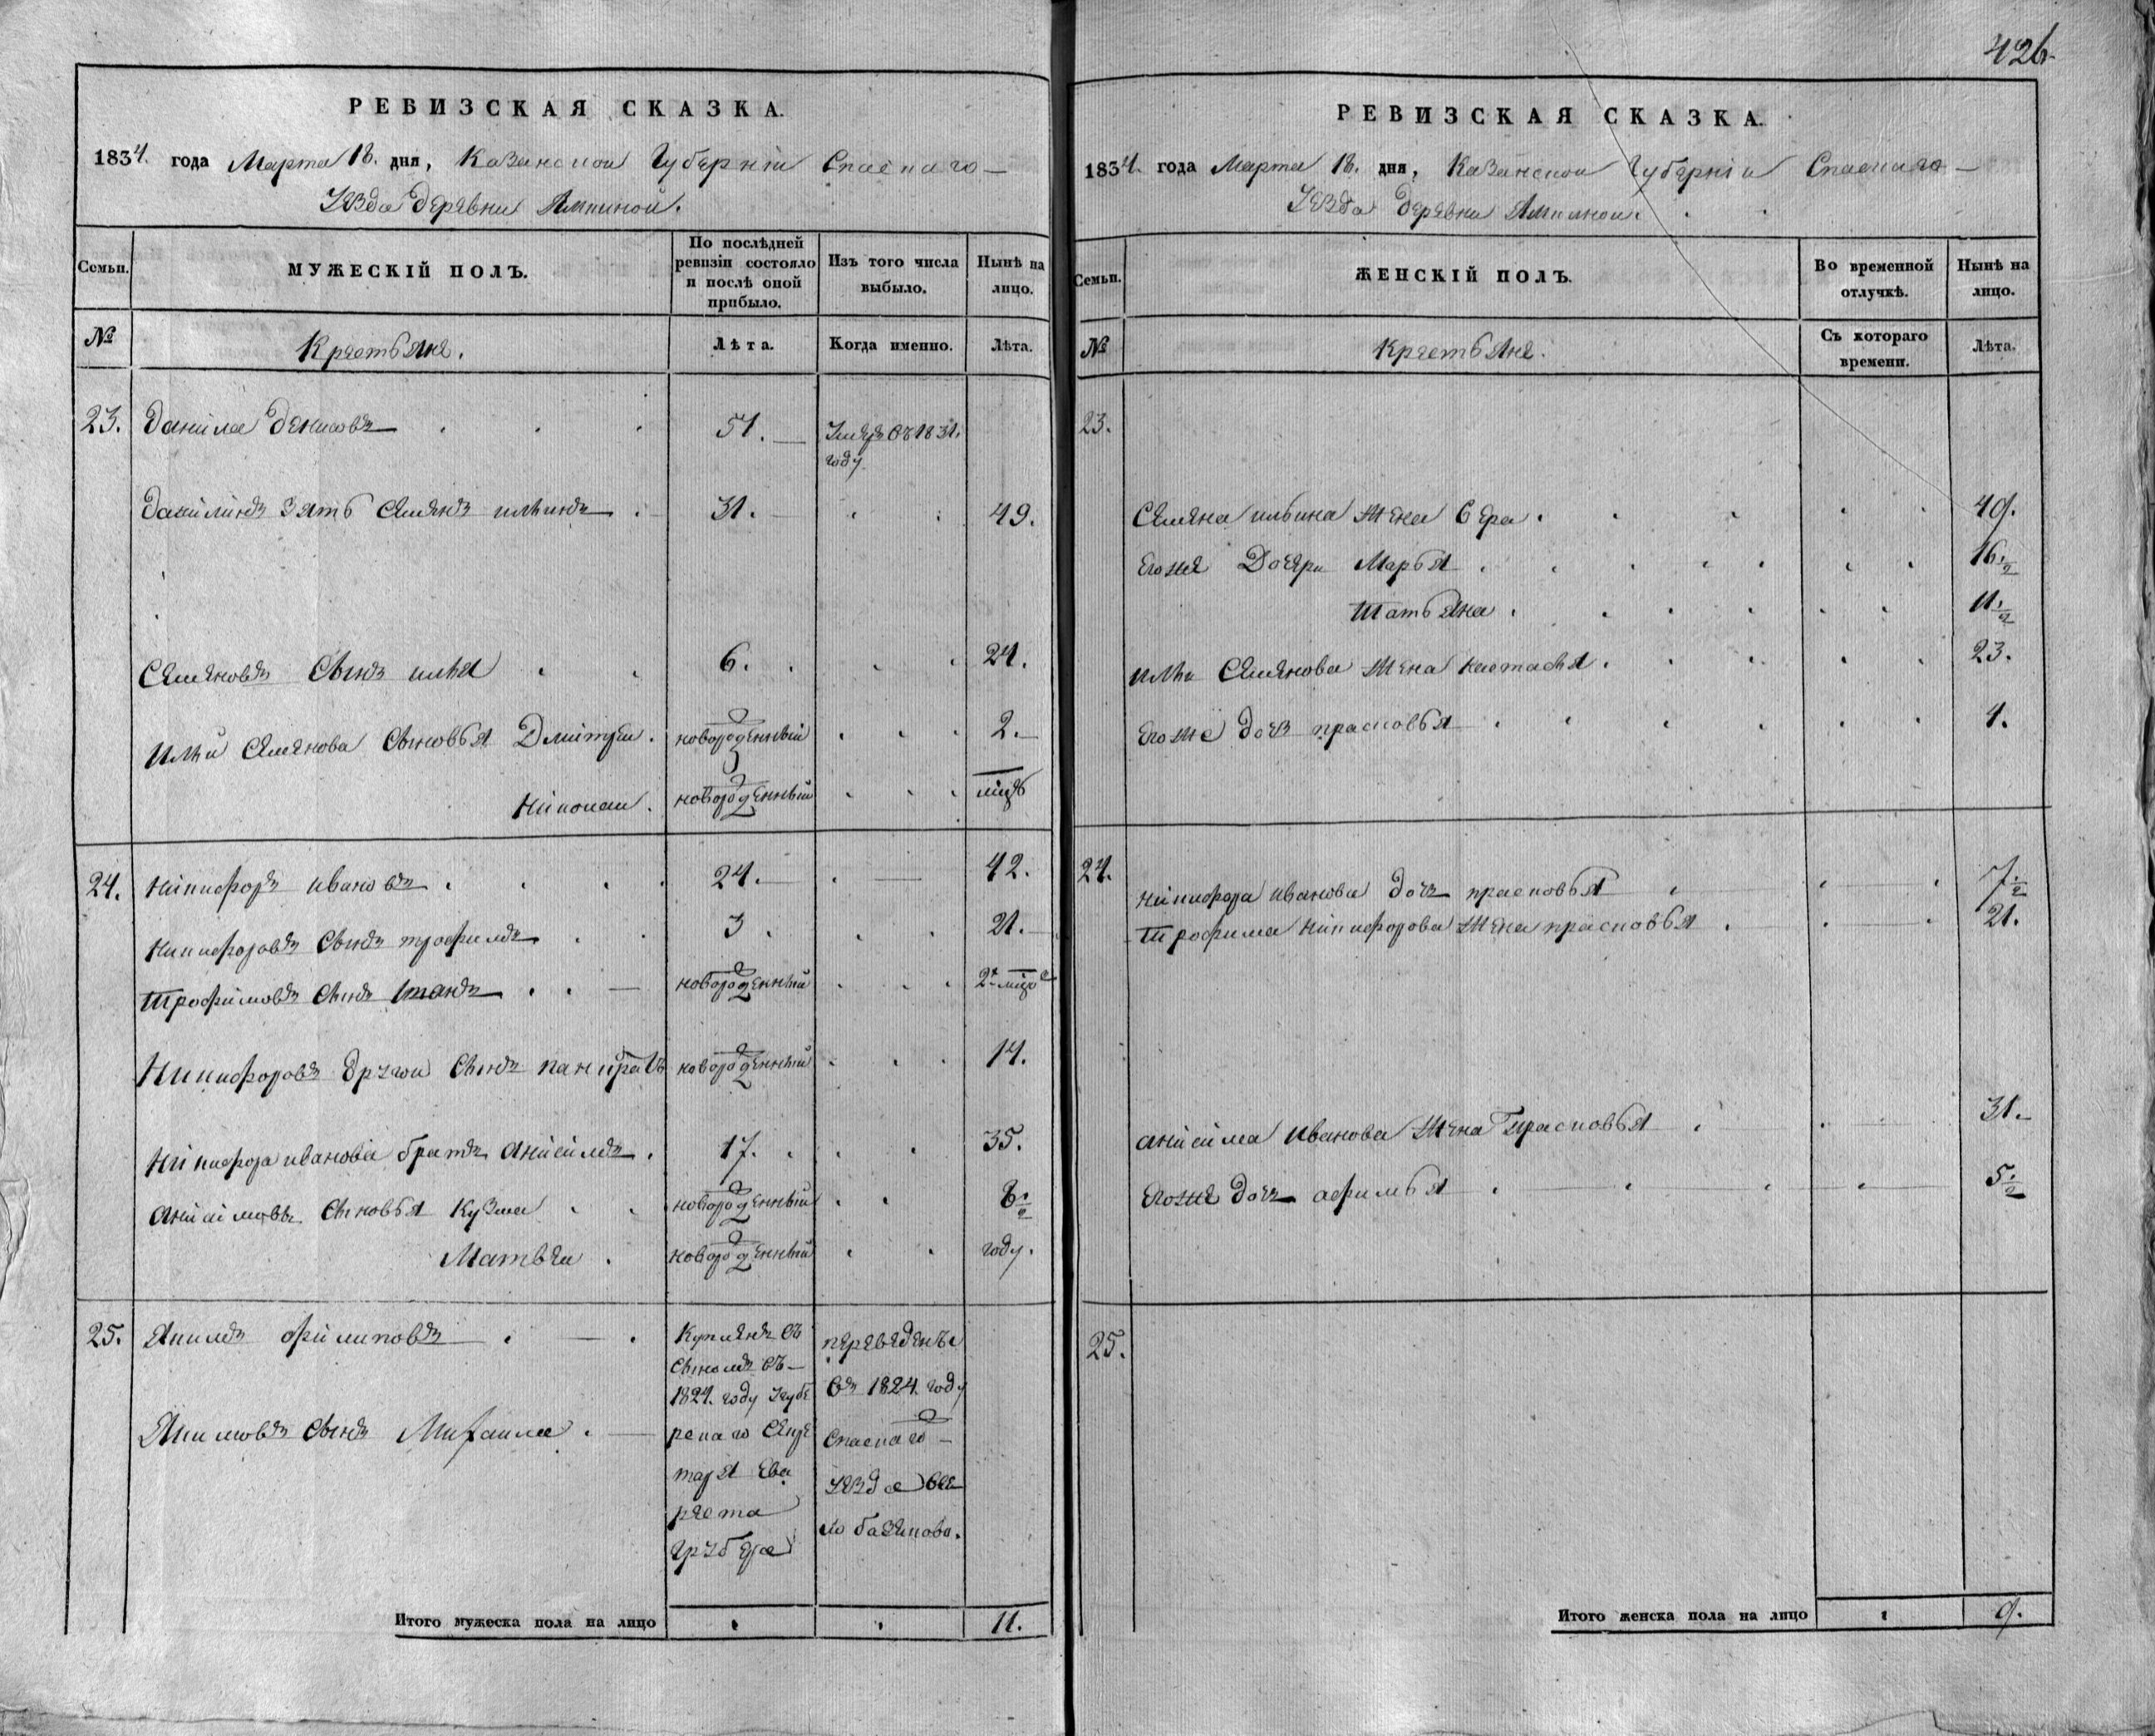 426.
РЕВИЗСКАЯ СКАЗКА.
1834. года Марта 18. дня, Казанской Губерніи Спаскаго
Уѣзда деревни
Семьи.
МУЖЕСКІЙ ПОЛЪ.
По послѣдней ревизіи состояло и послѣ оной прибыло.
Изъ того числа выбыло.
Нынѣ на лицо.
№
Крестьяне.
Лѣта.
Когда именно.
Лѣта.
23. Данила Денисовъ 51. Умеръ въ 1831. году
Данилинъ зять Семенъ ильинъ 31. 49.
Семеновъ сынъ илья 6. 24.
ильи Семенова сыновья Дмитреи новорожденный 2.
Николаи новорожденный
24. Никифоръ ивановъ 24. 42.
Никифоровъ сынъ трофимъ 3 21.
Трофимовъ сынъ новорожденный 2
Никифоровъ другои сынъ новорожденный 14.
Никифора иванова братъ анисимъ 17. 35.
анисимовы сыновья Кузма новорожденный
Матвеи новорожденный году.
25. Якимъ филиповъ
Якимовъ сынъ Михаила
Купленъ съ
сыномъ въ
1824. году у губе
рскаго секре
таря
Грубера
переведенъ
въ 1824. году
Спаскаго
уѣзда в се
ло
Итого мужеска пола на лицо 11.
РЕВИЗСКАЯ СКАЗКА.
1834. года Марта 18. дня, Казанской Губерніи Спаскаго
Уѣзда деревни
Семьи.
ЖЕНСКІЙ ПОЛЪ.
Во временной отлучкѣ.
Нынѣ на лицо.
№
Крестьяне.
Съ котораго времени.
Лѣта.
23.
Семена ильина жена Вера 49.
Егоже Дочери Марья 16. 1/2
Татьяна 11. 1/2
ильи Семенова жена настасья 23.
Егоже дочь прасковья 4.
24.
Никифора иванова дочь прасковья 7. 1/2
Трофима Никифорова жена прасковья 21.
анисима иванова жена Прасковья 31.
Егоже дочь афимья 5. 1/2
25.
Итого женска пола на лицо 9.